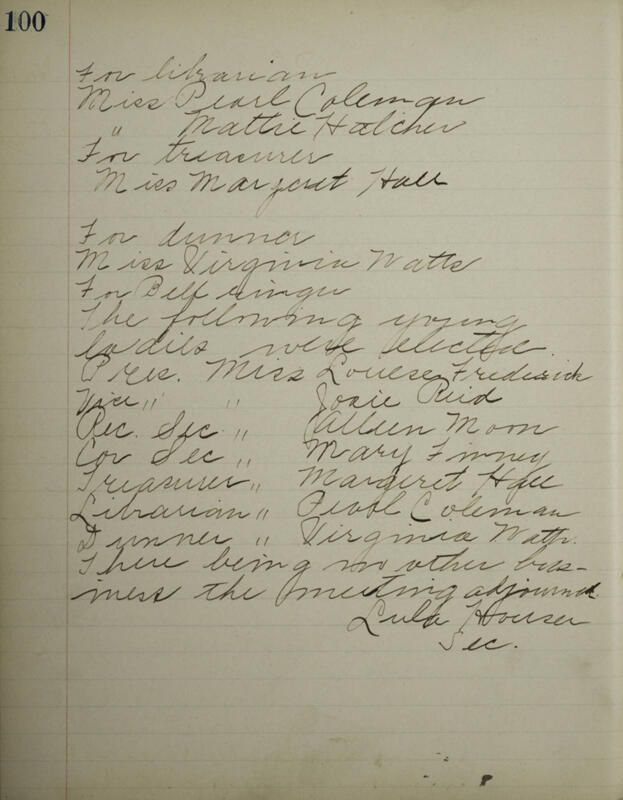 100
For librarian
Miss Pearl Coleman
" Mattie Hatcher
For treasurer
Miss Margaret Hall
For dunner
Miss Virginia Watts
For Bell ringer
The following young
ladies were elected.
Pres. Miss Louise Frederick
Vice " " Josie Reid
Rec. Sec " Alleen Moon
Cor Sec " Mary Finney
Treasurer " Margaret Hall
Librarian " Pearl Coleman
Dunner " Virginia Watts.
There being no other bus-
iness the meeting adjourned.
Lula Houser
Sec.